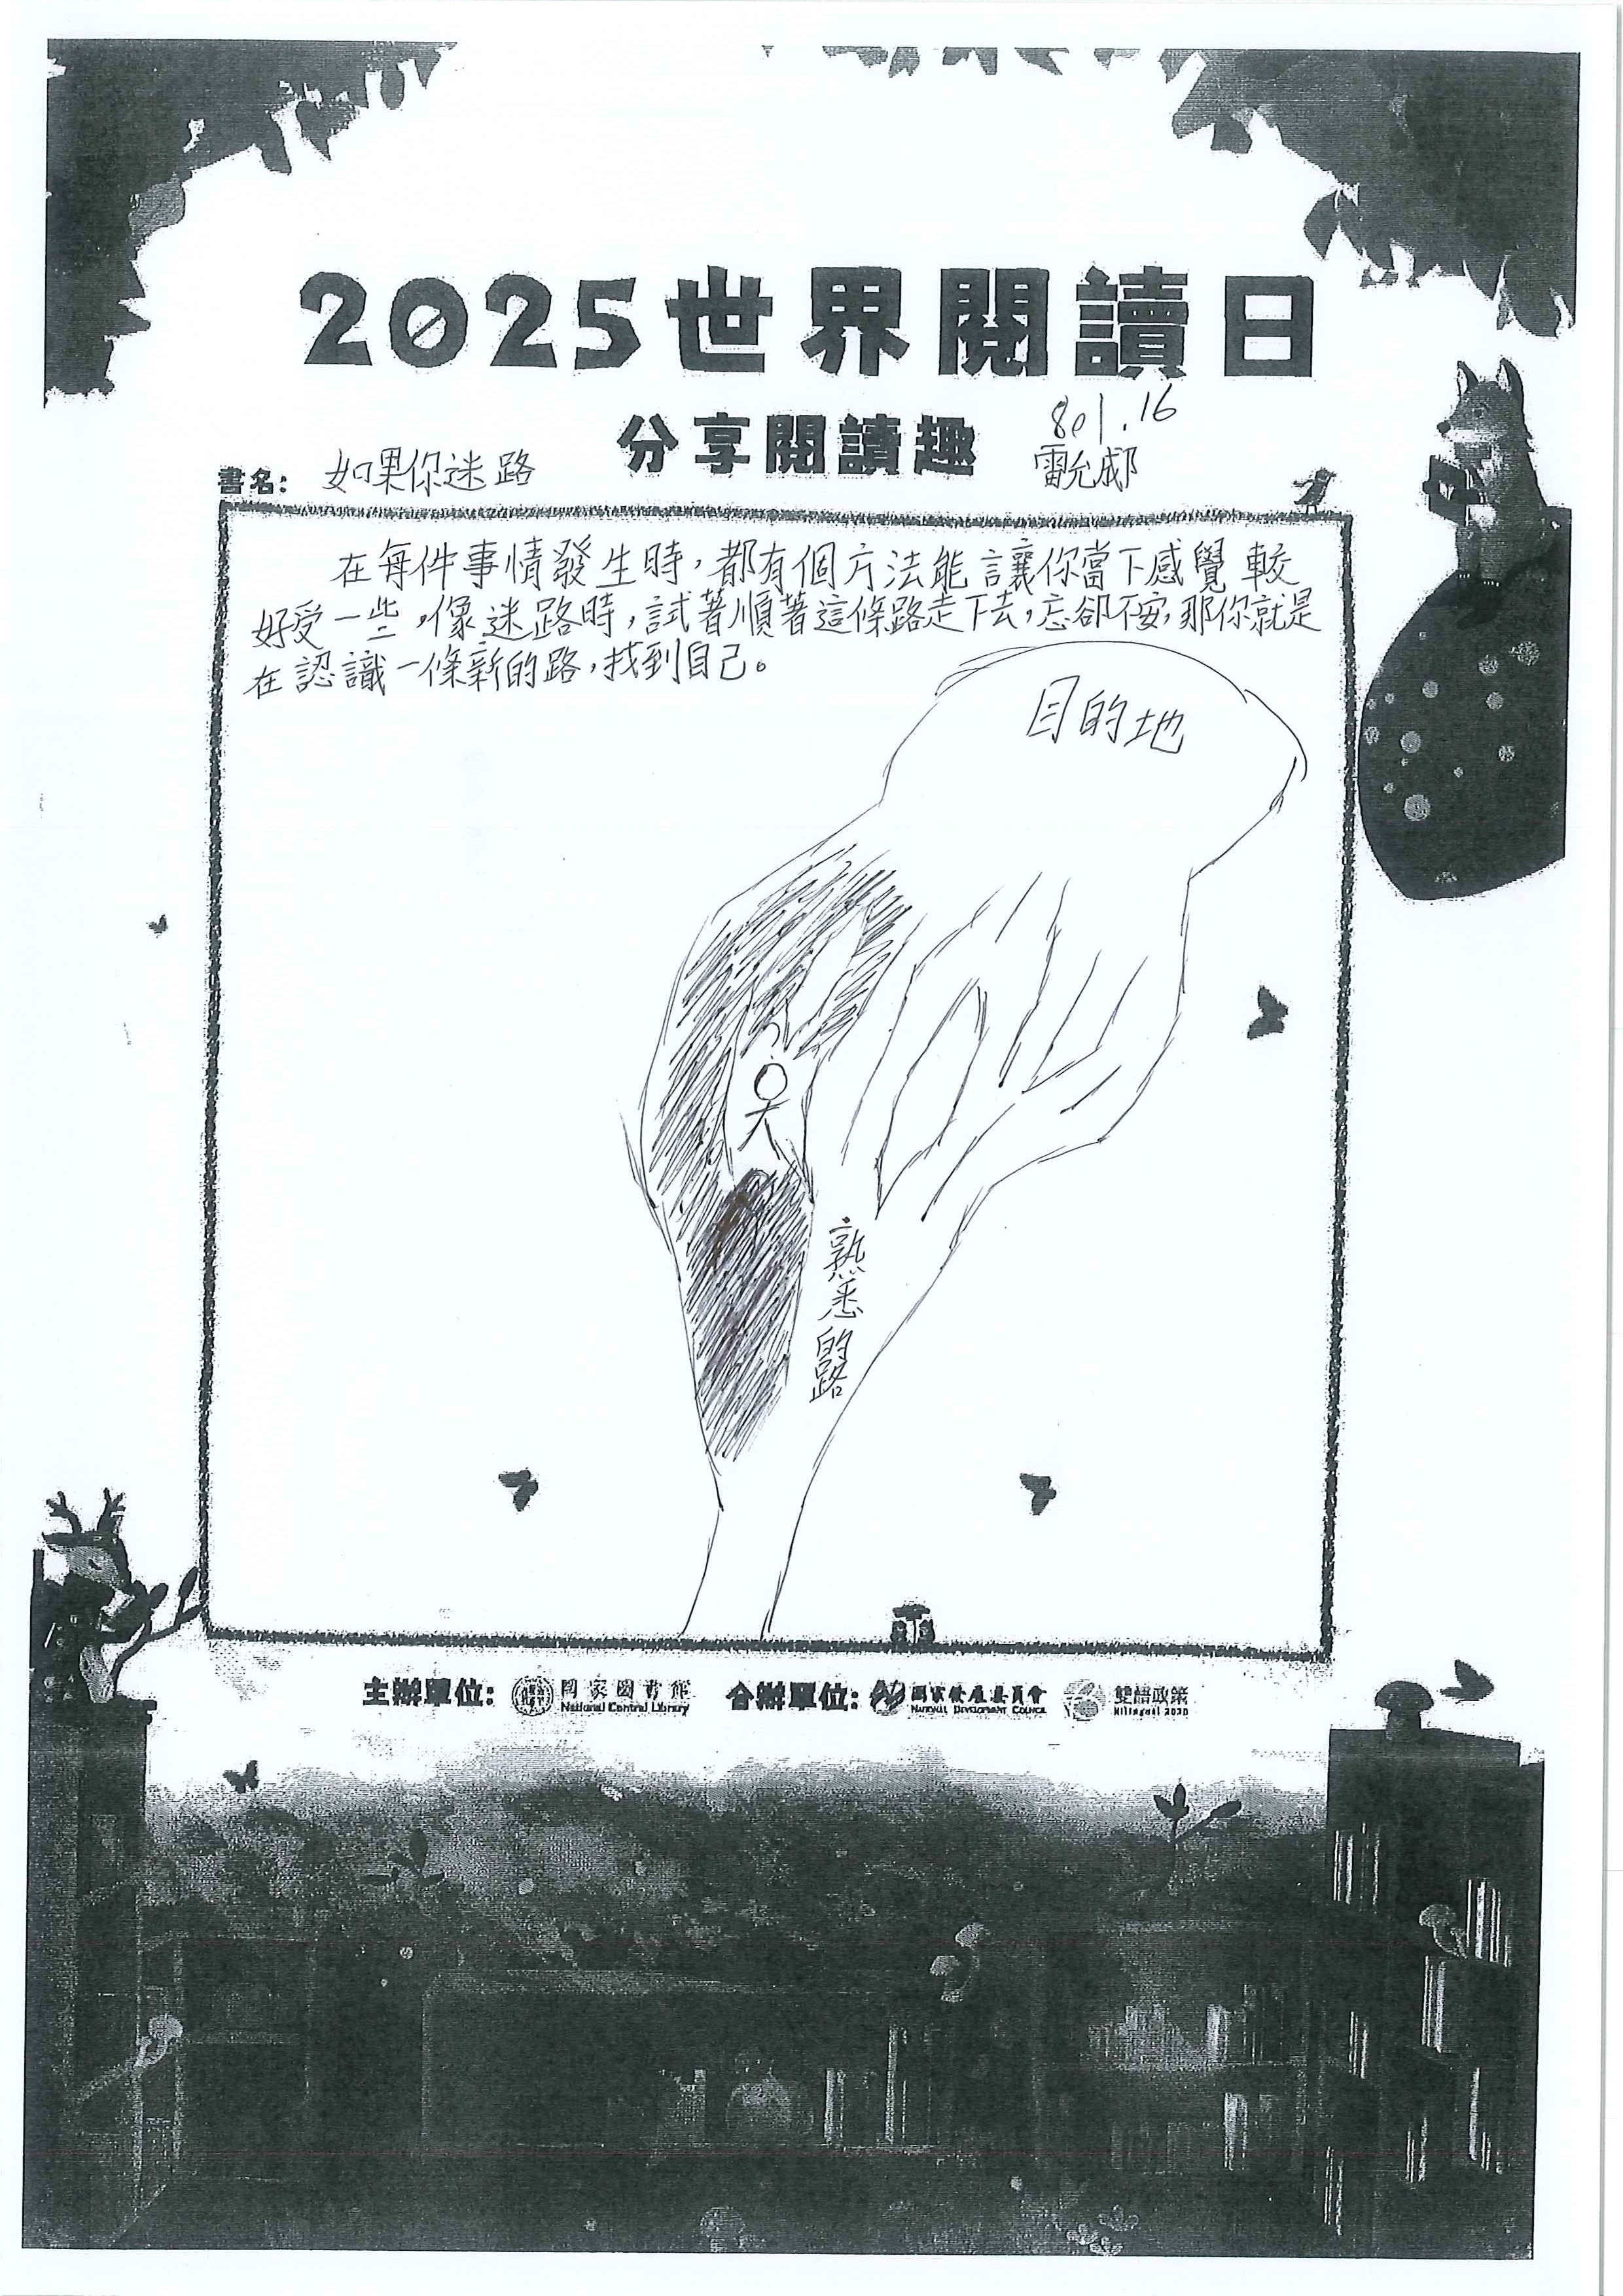 2025世界閱讀日
分享閱讀趣
801.16
書名: 如果你迷路
在每件事情發生時，都有個方法能讓你當下感覺較
好受一些，像迷路時，試著順著這條路走下去，忘卻不安，那你就是
在認識一條新的路，找到自己。
目的地
熟悉的路
主辦單位: 國家圖書館 合辦單位: 國家發展委員會 雙語政策
National Central Library NATIONAL DEVELOPMENT COUNCIL Bilingual 2030